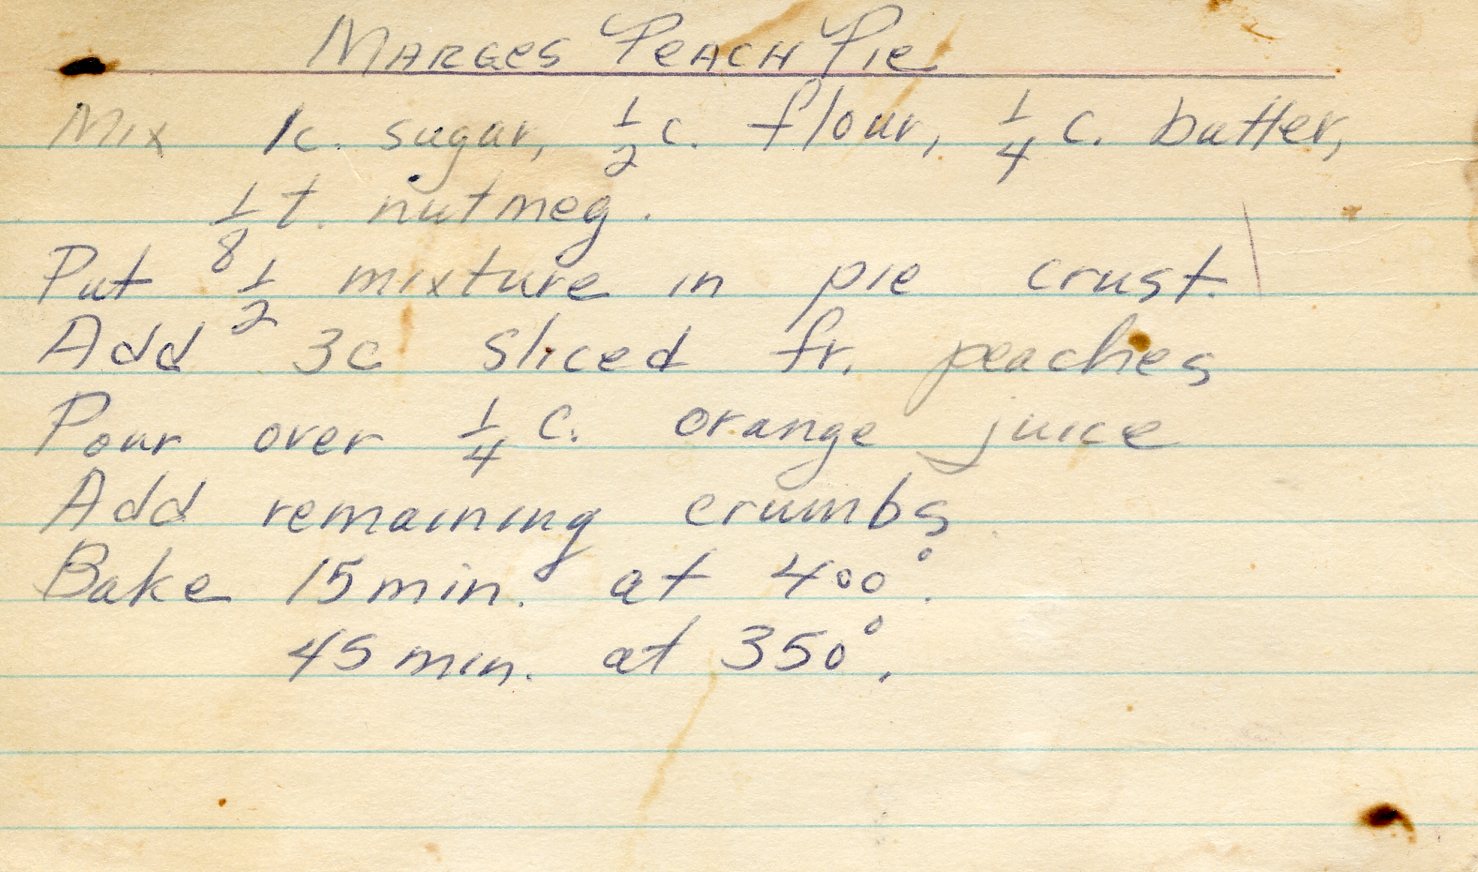 MARGES PEACH PIE
Mix 1c. sugar, 1/2 c. flour, 1/4 c. butter,
1/8 t. nutmeg.
Put 1/2 mixture in pie crust.
Add 3c sliced fr. peaches
Pour over 1/4 c. orange juice
Add remaining crumbs
Bake 15 min. at 400°.
45 min. at 350°.